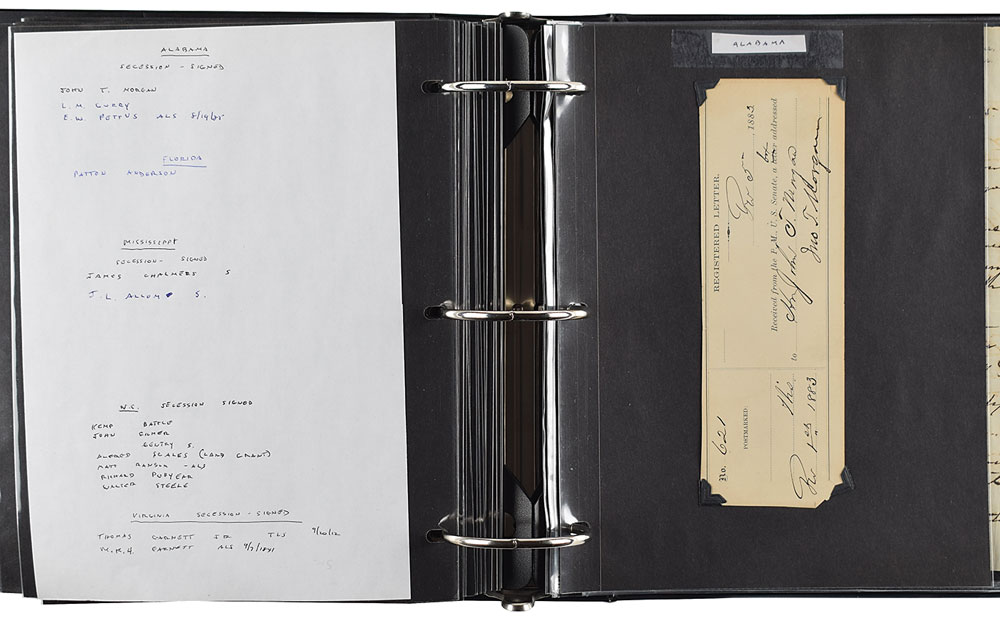 ALABAMA
SECESSION - SIGNED
JOHN T. MORGAN
L. M. CURRY
E.W. PETTUS ALS
FLORIDA
PATTON ANDERSON
MISSISSIPPI
SECESSION - SIGNED
JAMES CHALMERS S
J. L. ALCORN S.
N.C. SECESSION SIGNED
KEMP BATTLE
JOHN GILMER
GENTRY S.
ALFRED SCALES (LAND GRANT)
MATT RANSOM - ALS
RICHARD PURYEAR
WALTER STEELE
VIRGINIA SECESSION - SIGNED
THOMAS GARNETT SR TLS 9/20/12
M.R.H. GARNETT ALS
ALABAMA
No. 621
POSTMARKED:
the
1883
REGISTERED LETTER.
5 1883
Received from the P. M., U. S. Senate, a letter addressed
to Hon John T. Morgan
Jno T. Morgan